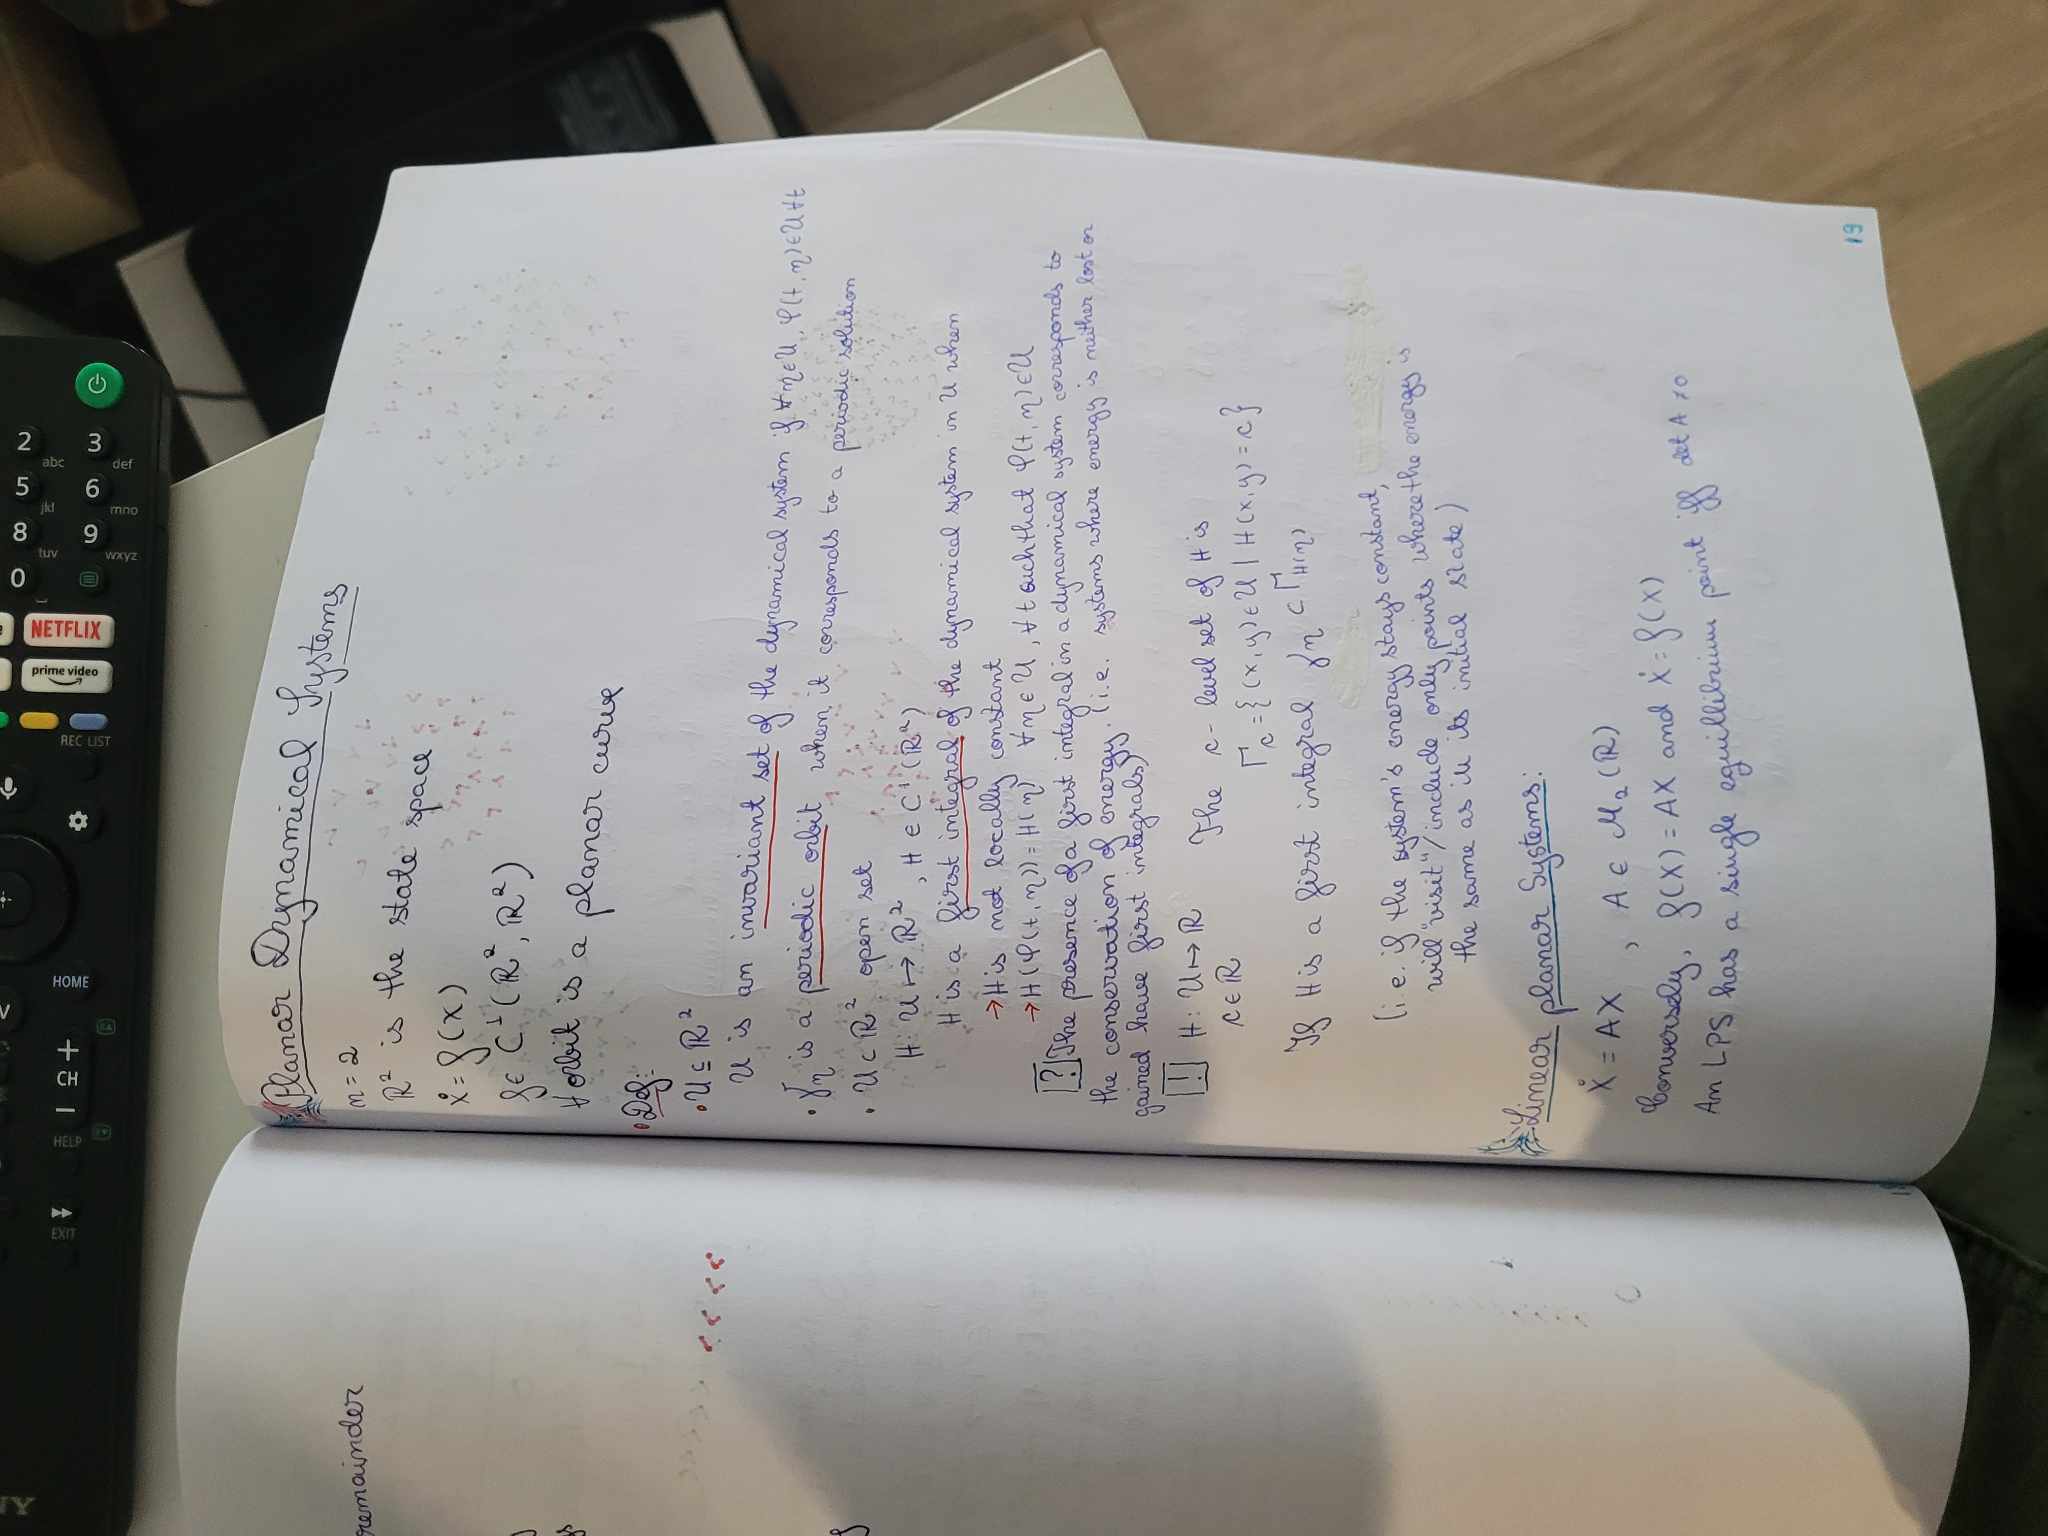 Planar Dynamical Systems
n = 2
ℝ² is the state space
Ẋ = f(X)
f ∈ C¹(ℝ², ℝ²)
∀ orbit is a planar curve
• Def:
• U ⊆ ℝ²
U is an invariant set of the dynamical system if ∀ η ∈ U, φ(t, η) ∈ U ∀t
• γη is a periodic orbit when it corresponds to a periodic solution
• U ⊂ ℝ² open set
H: U ↦ ℝ², H ∈ C¹(ℝ²)
H is a first integral of the dynamical system in U when
→ H is not locally constant
→ H(φ(t, η)) = H(η) ∀ η ∈ U, ∀ t such that φ(t, η) ∈ U
[?] The presence of a first integral in a dynamical system corresponds to
the conservation of energy. (i.e. systems where energy is neither lost or
gained have first integrals)
[!] H: U ↦ ℝ The c-level set of H is
c ∈ ℝ Γc = {(x, y) ∈ U | H(x, y) = c}
If H is a first integral γη ⊂ ΓH(η)
(i.e. if the system's energy stays constant,
will "visit"/include only points where the energy is
the same as in its initial state)
Linear planar Systems:
Ẋ = AX , A ∈ M₂(ℝ)
Conversely, f(X) = AX and Ẋ = f(X)
An LPS has a single equillibrium point iff det A ≠ 0
19
remainder
2 abc
3 def
5 jkl
6 mno
8 tuv
9 wxyz
0
NETFLIX
prime video
REC LIST
HOME
+
CH
−
HELP
EXIT